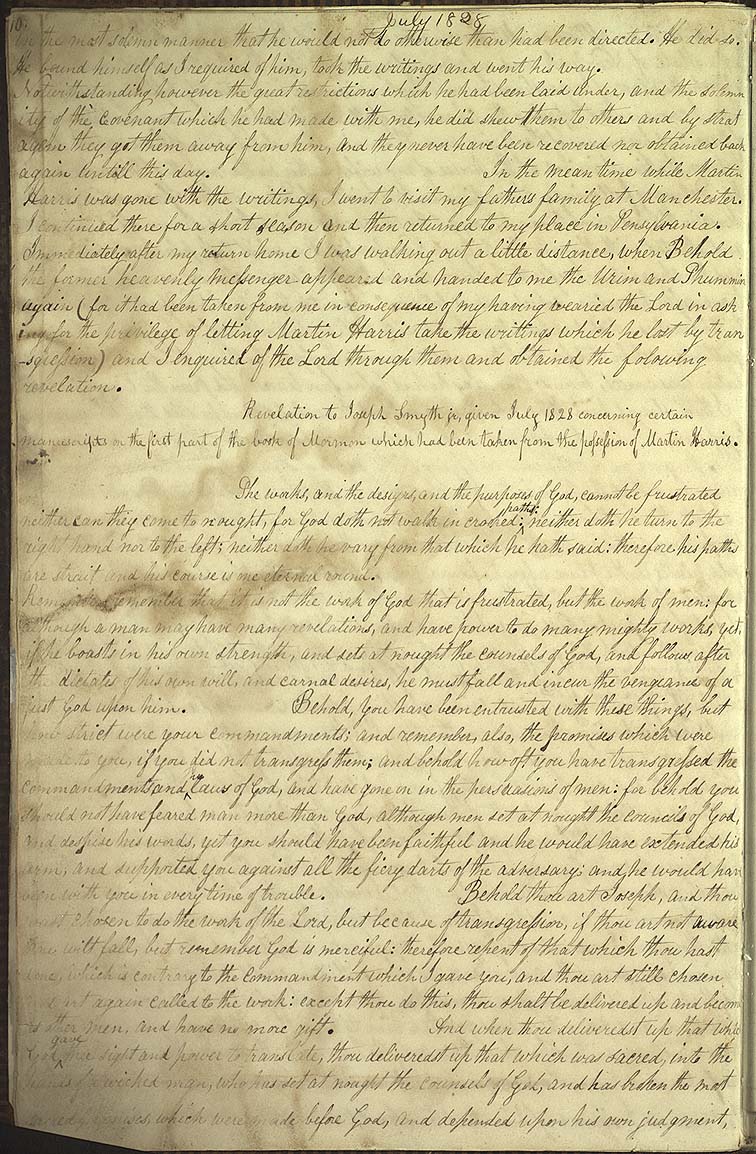 10 July 1828
in the most solemn manner that he would not do otherwise than had been directed. He did so.
He bound himself as I required of him, took the writings and went his way.
Notwithstanding however the great restrictions which he had been laid under, and the solemn
ity of the covenant which he had made with me, he did shew them to others and by strat
agem they got them away from him, and they never have been recovered nor obtained back
again untill this day. In the mean time while Martin
Harris was gone with the writings, I went to visit my fathers family at Manchester.
I continued there for a short season and then returned to my place in Pensylvania.
Immediately after my return home I was walking out a little distance, when Behold
the former heavenly messenger appeared and handed to me the Urim and Thummin
again (for it had been taken from me in consequence of my having wearied the Lord in ask
ing for the privilege of letting Martin Harris take the writings which he lost by tran
-sgression) and I enquired of the Lord through them and obtained the folowing
revelation.
Revelation to Joseph Smyth jr, given July 1828 concerning certain
manuscripts on the first part of the book of Mormon which had been taken from the possession of Martin Harris.
The works, and the designs, and the purposes of God, cannot be frustrated
neither can they come to nought, for God doth not walk in crooked paths; neither doth he turn to the
right hand nor to the left; neither doth he vary from that which he hath said: therefore his paths
are strait and his course is one eternal round.
Remember, remember that it is not the work of God that is frustrated, but the work of men: for
although a man may have many revelations, and have power to do many mighty works, yet,
if he boasts in his own strength, and sets at nought the counsels of God, and follows after
the dictates of his own will, and carnal desires, he must fall and incur the vengeance of a
just God upon him. Behold, you have been entrusted with these things, but
how strict were your commandments; and remember, also, the promises which were
made to you, if you did not transgress them; and behold how oft you have transgressed the
commandments and laws of God, and have gone on in the persuasions of men: for behold you
should not have feared man more than God, although men set at nought the councils of God,
and despise his words, yet you should have been faithful and he would have extended his
arm, and supported you against all the fiery darts of the adversary; and he would have
been with you in every time of trouble. Behold thou art Joseph, and thou
wast chosen to do the work of the Lord, but because of transgression, if thou art not aware
thou wilt fall, but remember God is merciful: therefore repent of that which thou hast
done, which is contrary to the commandment which I gave you, and thou art still chosen
and art again called to the work: except thou do this, thou shalt be delivered up and become
as other men, and have no more gift. And when thou deliveredst up that which
God gave thee sight and power to translate, thou deliveredst up that which was sacred, into the
hands of a wicked man, who has set at nought the counsels of God, and has broken the most
sacred promises, which were made before God, and depended upon his own judgment,